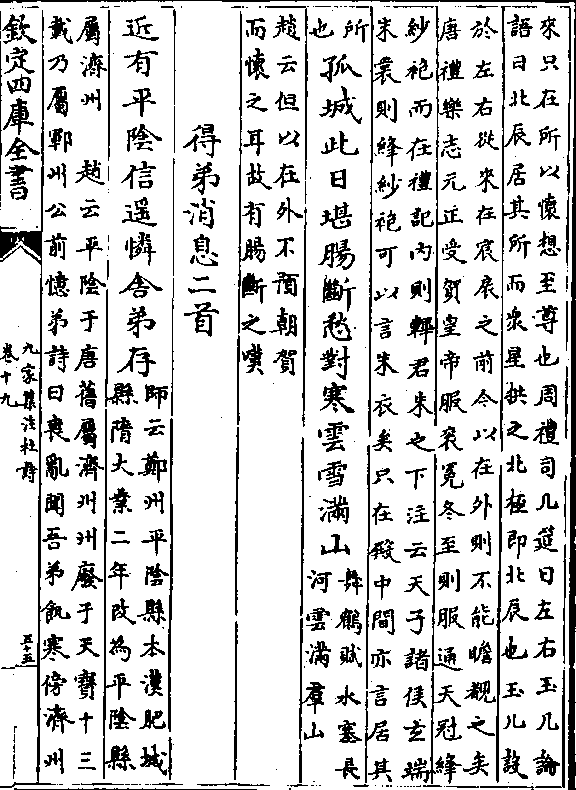 來只在所以懷想至尊也周禮司几筵曰左右玉几論
語曰北辰居其所而衆星拱之北極即北辰也玉几設
於左右從來在宸扆之前今以在外則不能瞻覩之矣
唐禮樂志元正受賀皇帝服衮冕冬至則服通天冠絳
紗袍而在禮記内則鞸君朱也下注云天子諸侯玄端
朱裳則絳紗袍可以言朱衣矣只在殿中間亦言居其
所
也
孤城此日堪腸斷愁對寒雲雪滿山
舞鶴賦氷塞長
河雲滿羣山
趙云但以在外不預朝賀
而懷之耳故有腸斷之嘆
得弟消息二首
近有平陰信遥憐舍弟存
師云鄭州平陰縣本漢肥城
縣隋大業二年改為平陰縣
屬濟州 趙云平陰于唐舊屬濟州州廢于天寶十三
載乃屬鄆州公前憶弟詩曰喪亂聞吾弟飢寒傍濟州
欽定四庫全書
九家集注杜詩
卷十九
五十五